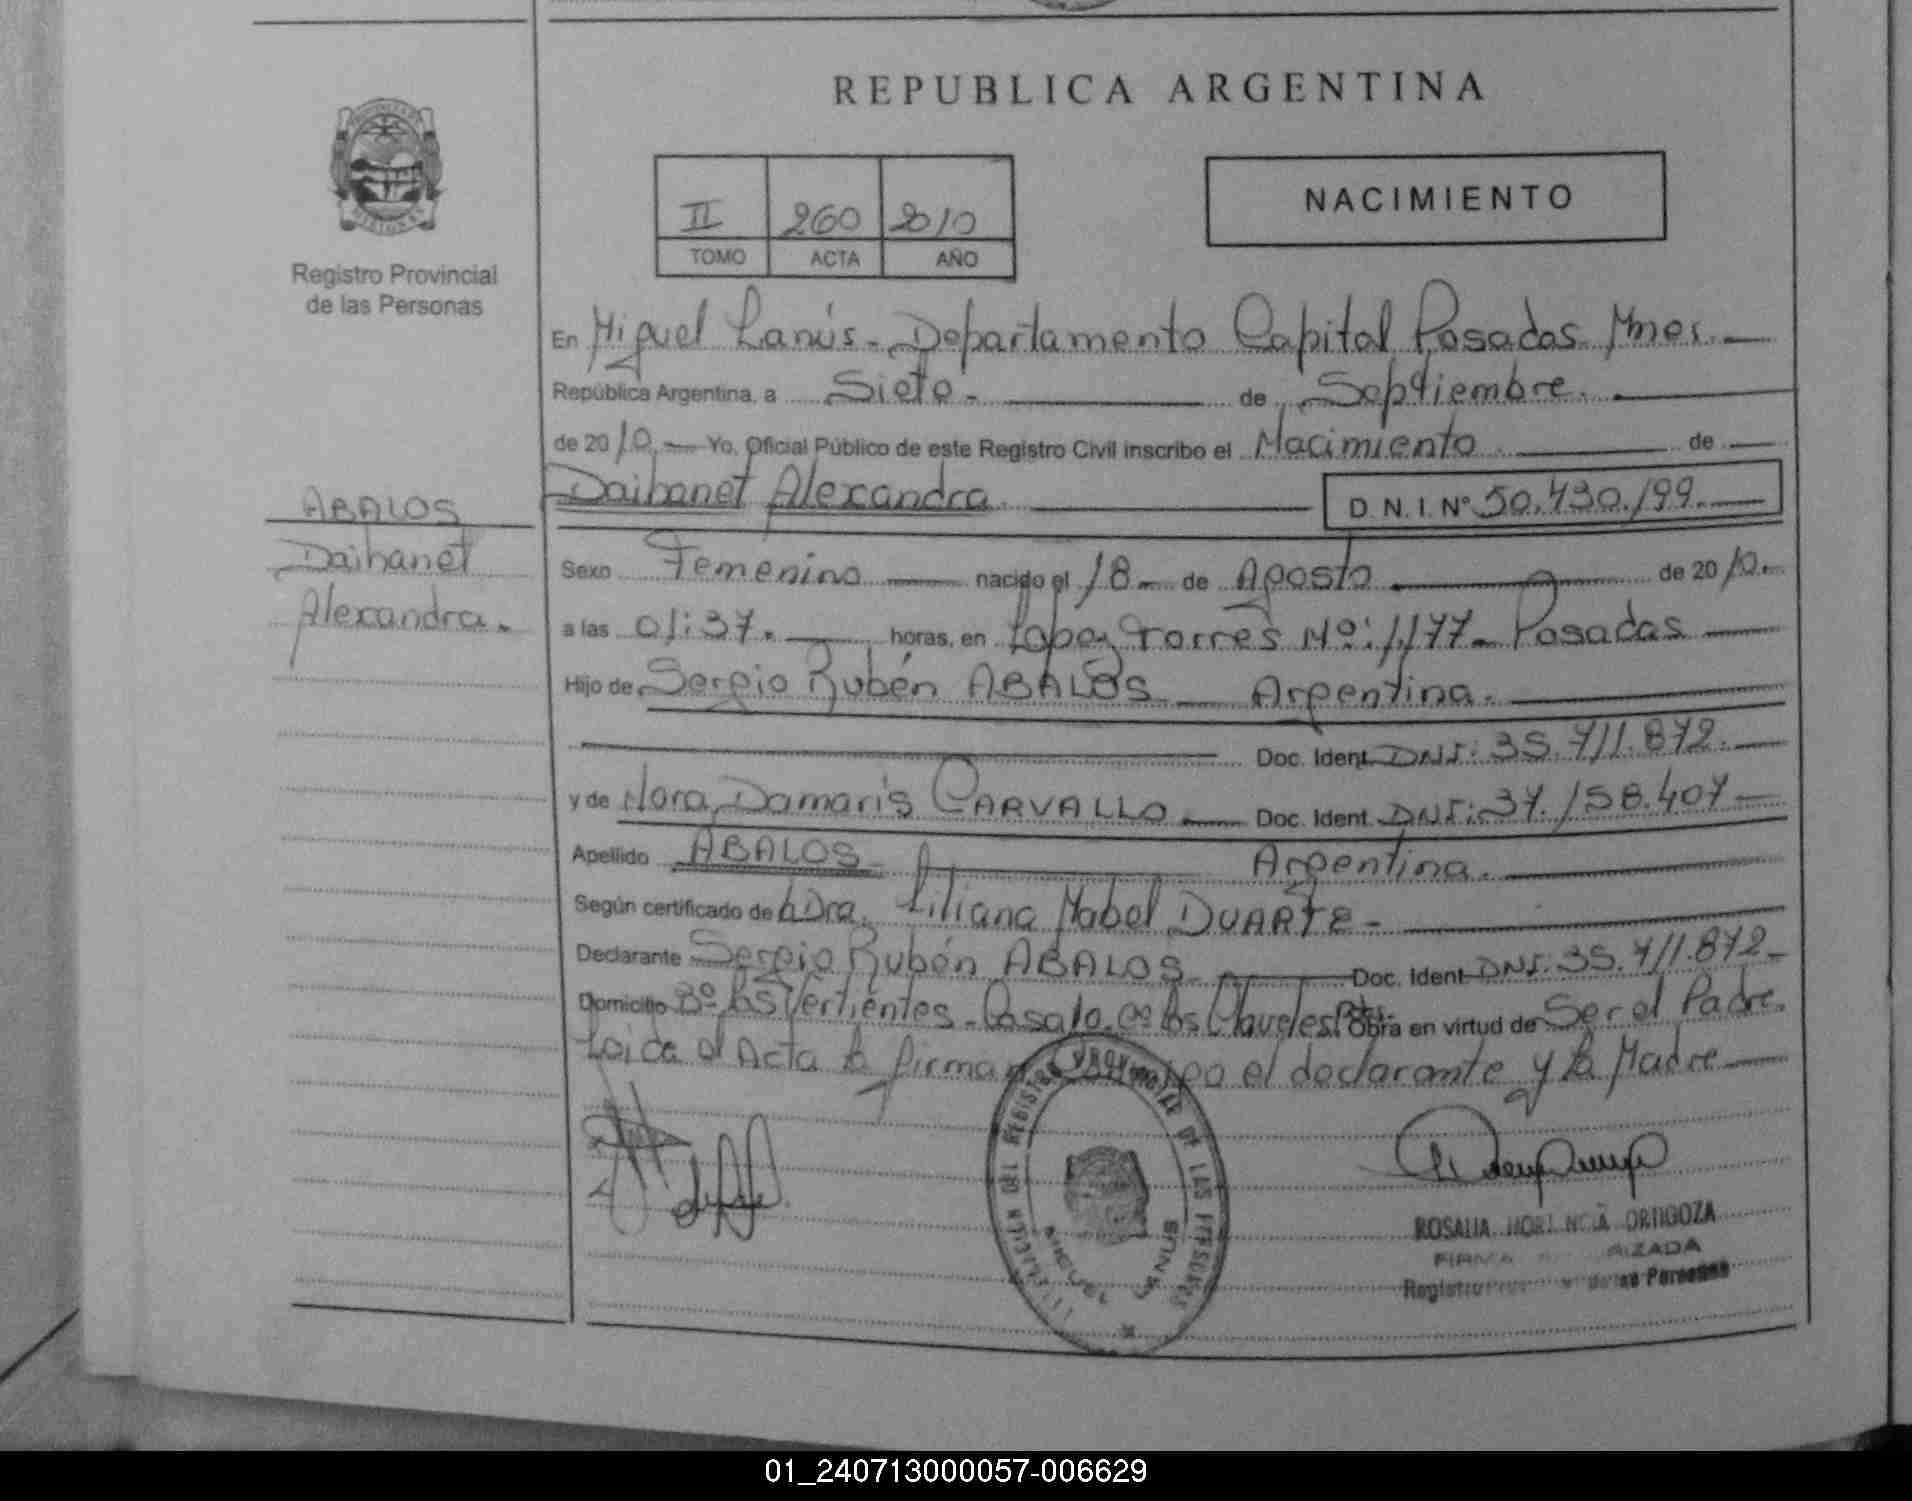 REPUBLICA ARGENTINA
NACIMIENTO
II 260 2010
TOMO ACTA AÑO
Registro Provincial
de las Personas
En Miguel Lanús - Departamento Capital Posadas Mnes.
República Argentina, a Siete - de Septiembre.
de 2010 Yo, Oficial Público de este Registro Civil inscribo el Nacimiento de
Daihanet Alexandra D.N.I. Nº 50.430.199.
ABALOS
Daihanet
Alexandra.
Sexo Femenino nacido el 18 de Agosto de 2010.
a las 01:37. horas, en Lopez Torres Nº: 1177 - Posadas
Hijo de Sergio Rubén ABALOS Argentina.
Doc. Ident. DNI: 35.711.872.
y de Nora Damaris CARVALLO Doc. Ident. DNI: 37.158.407
Apellido ABALOS Argentina.
Según certificado de la Dra. Liliana Mabel DUARTE -
Declarante Sergio Rubén ABALOS Doc. Ident DNI. 35.711.872 -
Domicilio Bº Las Vertientes - Casa 10 Los Claveles Pdas. Obra en virtud de Ser el Padre.
Leida el Acta la firman conmigo el declarante y la Madre
REGISTRO PROVINCIAL DE LAS PERSONAS
MIGUEL LANUS
ROSALIA ORTIGOZA
FIRMA
Registro de las Personas
01_240713000057-006629